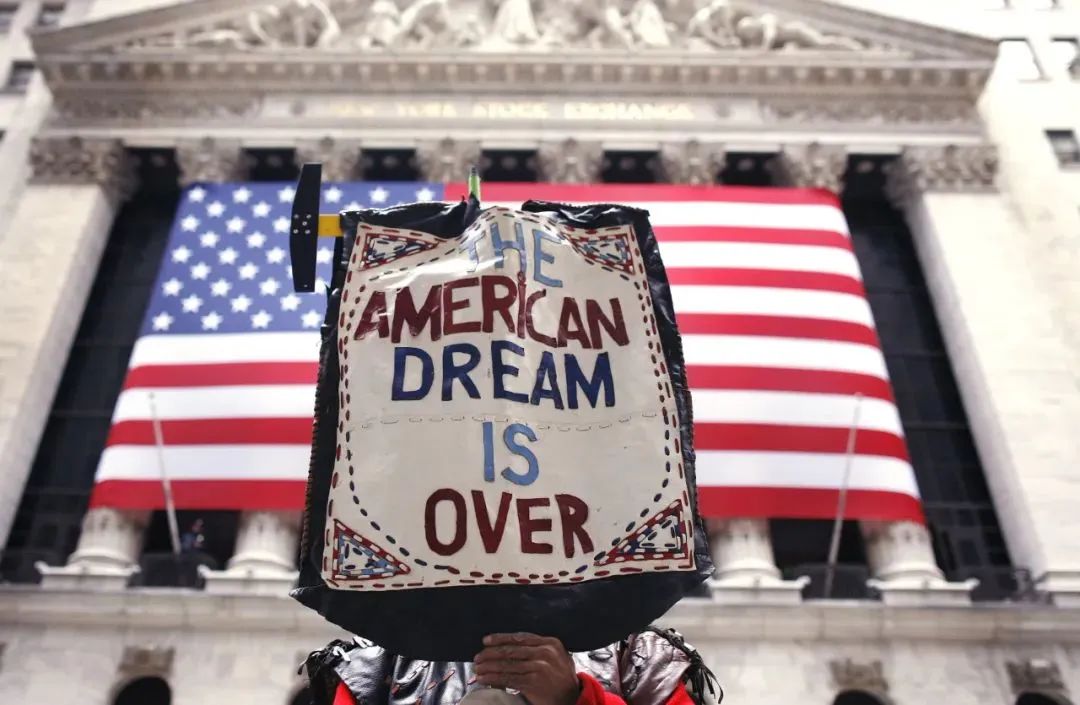 NEW YORK STOCK EXCHANGE
THE
AMERICAN
DREAM
IS
OVER